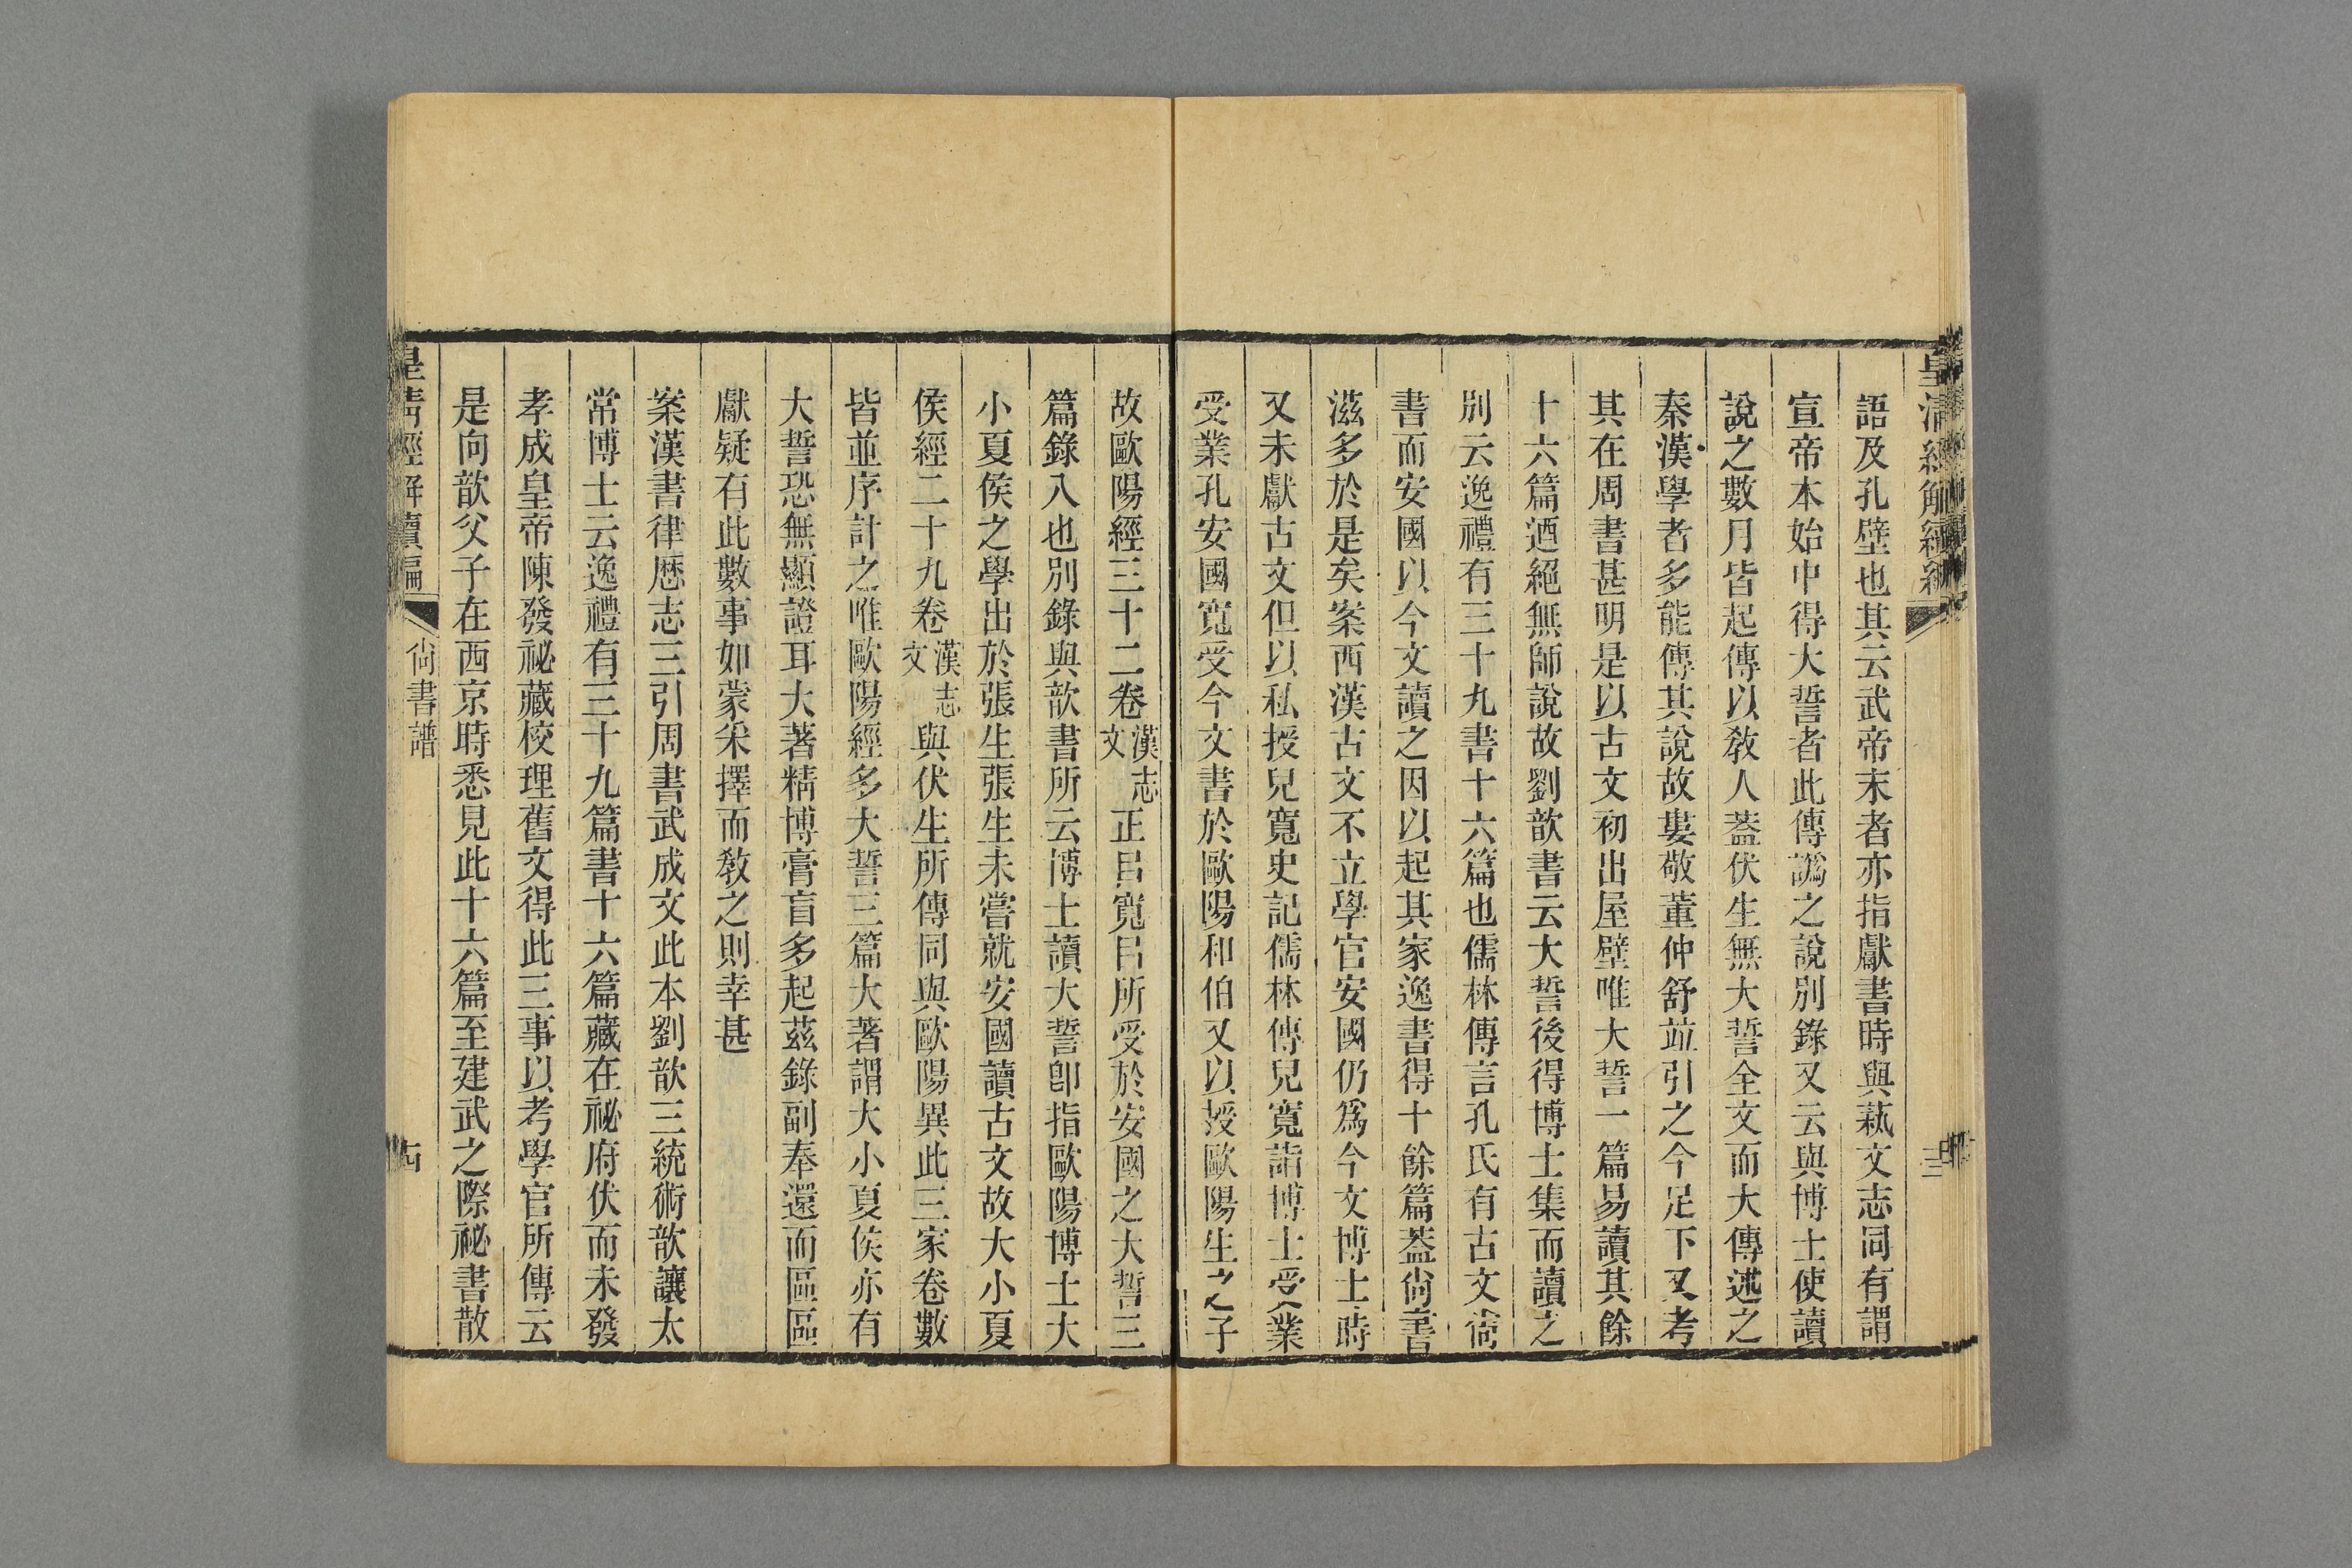 皇清經解續編
語及孔壁也其云武帝末者亦指獻書時與蓺文志同有謂
宣帝本始中得大誓者此傳譌之說別錄又云與博士使讀
說之數月皆起傳以敎人葢伏生無大誓全文而大傳述之
秦漢學者多能傳其說故婁敬董仲舒竝引之今足下又考
其在周書甚明是以古文初出屋壁唯大誓一篇易讀其餘
十六篇迺絕無師說故劉歆書云大誓後得博士集而讀之
別云逸禮有三十九書十六篇也儒林傳言孔氏有古文尙
書而安國以今文讀之因以起其家逸書得十餘篇葢尙書
滋多於是矣案西漢古文不立學官安國仍爲今文博士時
又未獻古文但以私授兒寬史記儒林傳兒寬詣博士受業
受業孔安國寬受今文書於歐陽和伯又以授歐陽生之子
故歐陽經三十二卷漢志文正㠯寬㠯所受於安國之大誓三
篇錄入也別錄與歆書所云博士讀大誓卽指歐陽博士大
小夏侯之學出於張生張生未嘗就安國讀古文故大小夏
侯經二十九卷漢志文與伏生所傳同與歐陽異此三家卷數
皆並序計之唯歐陽經多大誓三篇大著謂大小夏侯亦有
大誓恐無顯證耳大著精博膏盲多起茲錄副奉還而區區
獻疑有此數事如蒙采擇而敎之則幸甚
案漢書律厯志三引周書武成文此本劉歆三統術歆讓太
常博士云逸禮有三十九篇書十六篇藏在祕府伏而未發
孝成皇帝陳發祕藏校理舊文得此三事以考學官所傳云
是向歆父子在西京時悉見此十六篇至建武之際祕書散
皇清經解續編
尙書譜